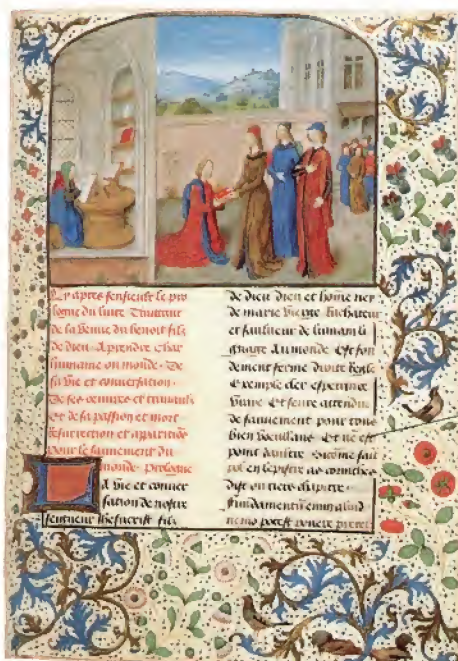 Cy apres sensieut le pro
logue du liure Traittant
de la venue du benoit filz
de dieu. Aprendre char
humaine ou monde. De
sa vie et conuersation.
De ses oeuures et trauaulx
Et de sa passion et mort
resurrection et aparicions
Pour le sauuement du
monde. Prologue
La vie et conuer
sation de nostre
seigneur ihesucrist filz
de dieu dieu et home ney
de marie vierge Rachateur
et saulueur de lumain li
gnage du monde Est fon
dement ferme droite
exemple cler esperance
vraye et seure attendue
de sauuement pour tous
bien voeullans Et ne est
point daultre Sicome saint
pol en lepistre as corinthes
dist ou tiers chapitre
Fundamentum enim aliud
nemo potest ponere preter